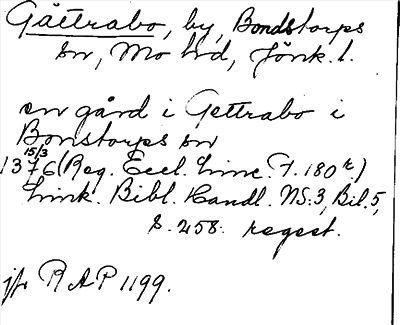 Gättrabo, by, Bondstorps
sn, Mo hd, Jönk. l.
en gård i Gettrabo i
Bonstorps sn
15/3
1376 (Reg. Eccl. Linc. f. 180 r.)
Link. Bibl. Handl. NS:3, Bil. 5,
s. 258. regest.
jfr RAP 1199.